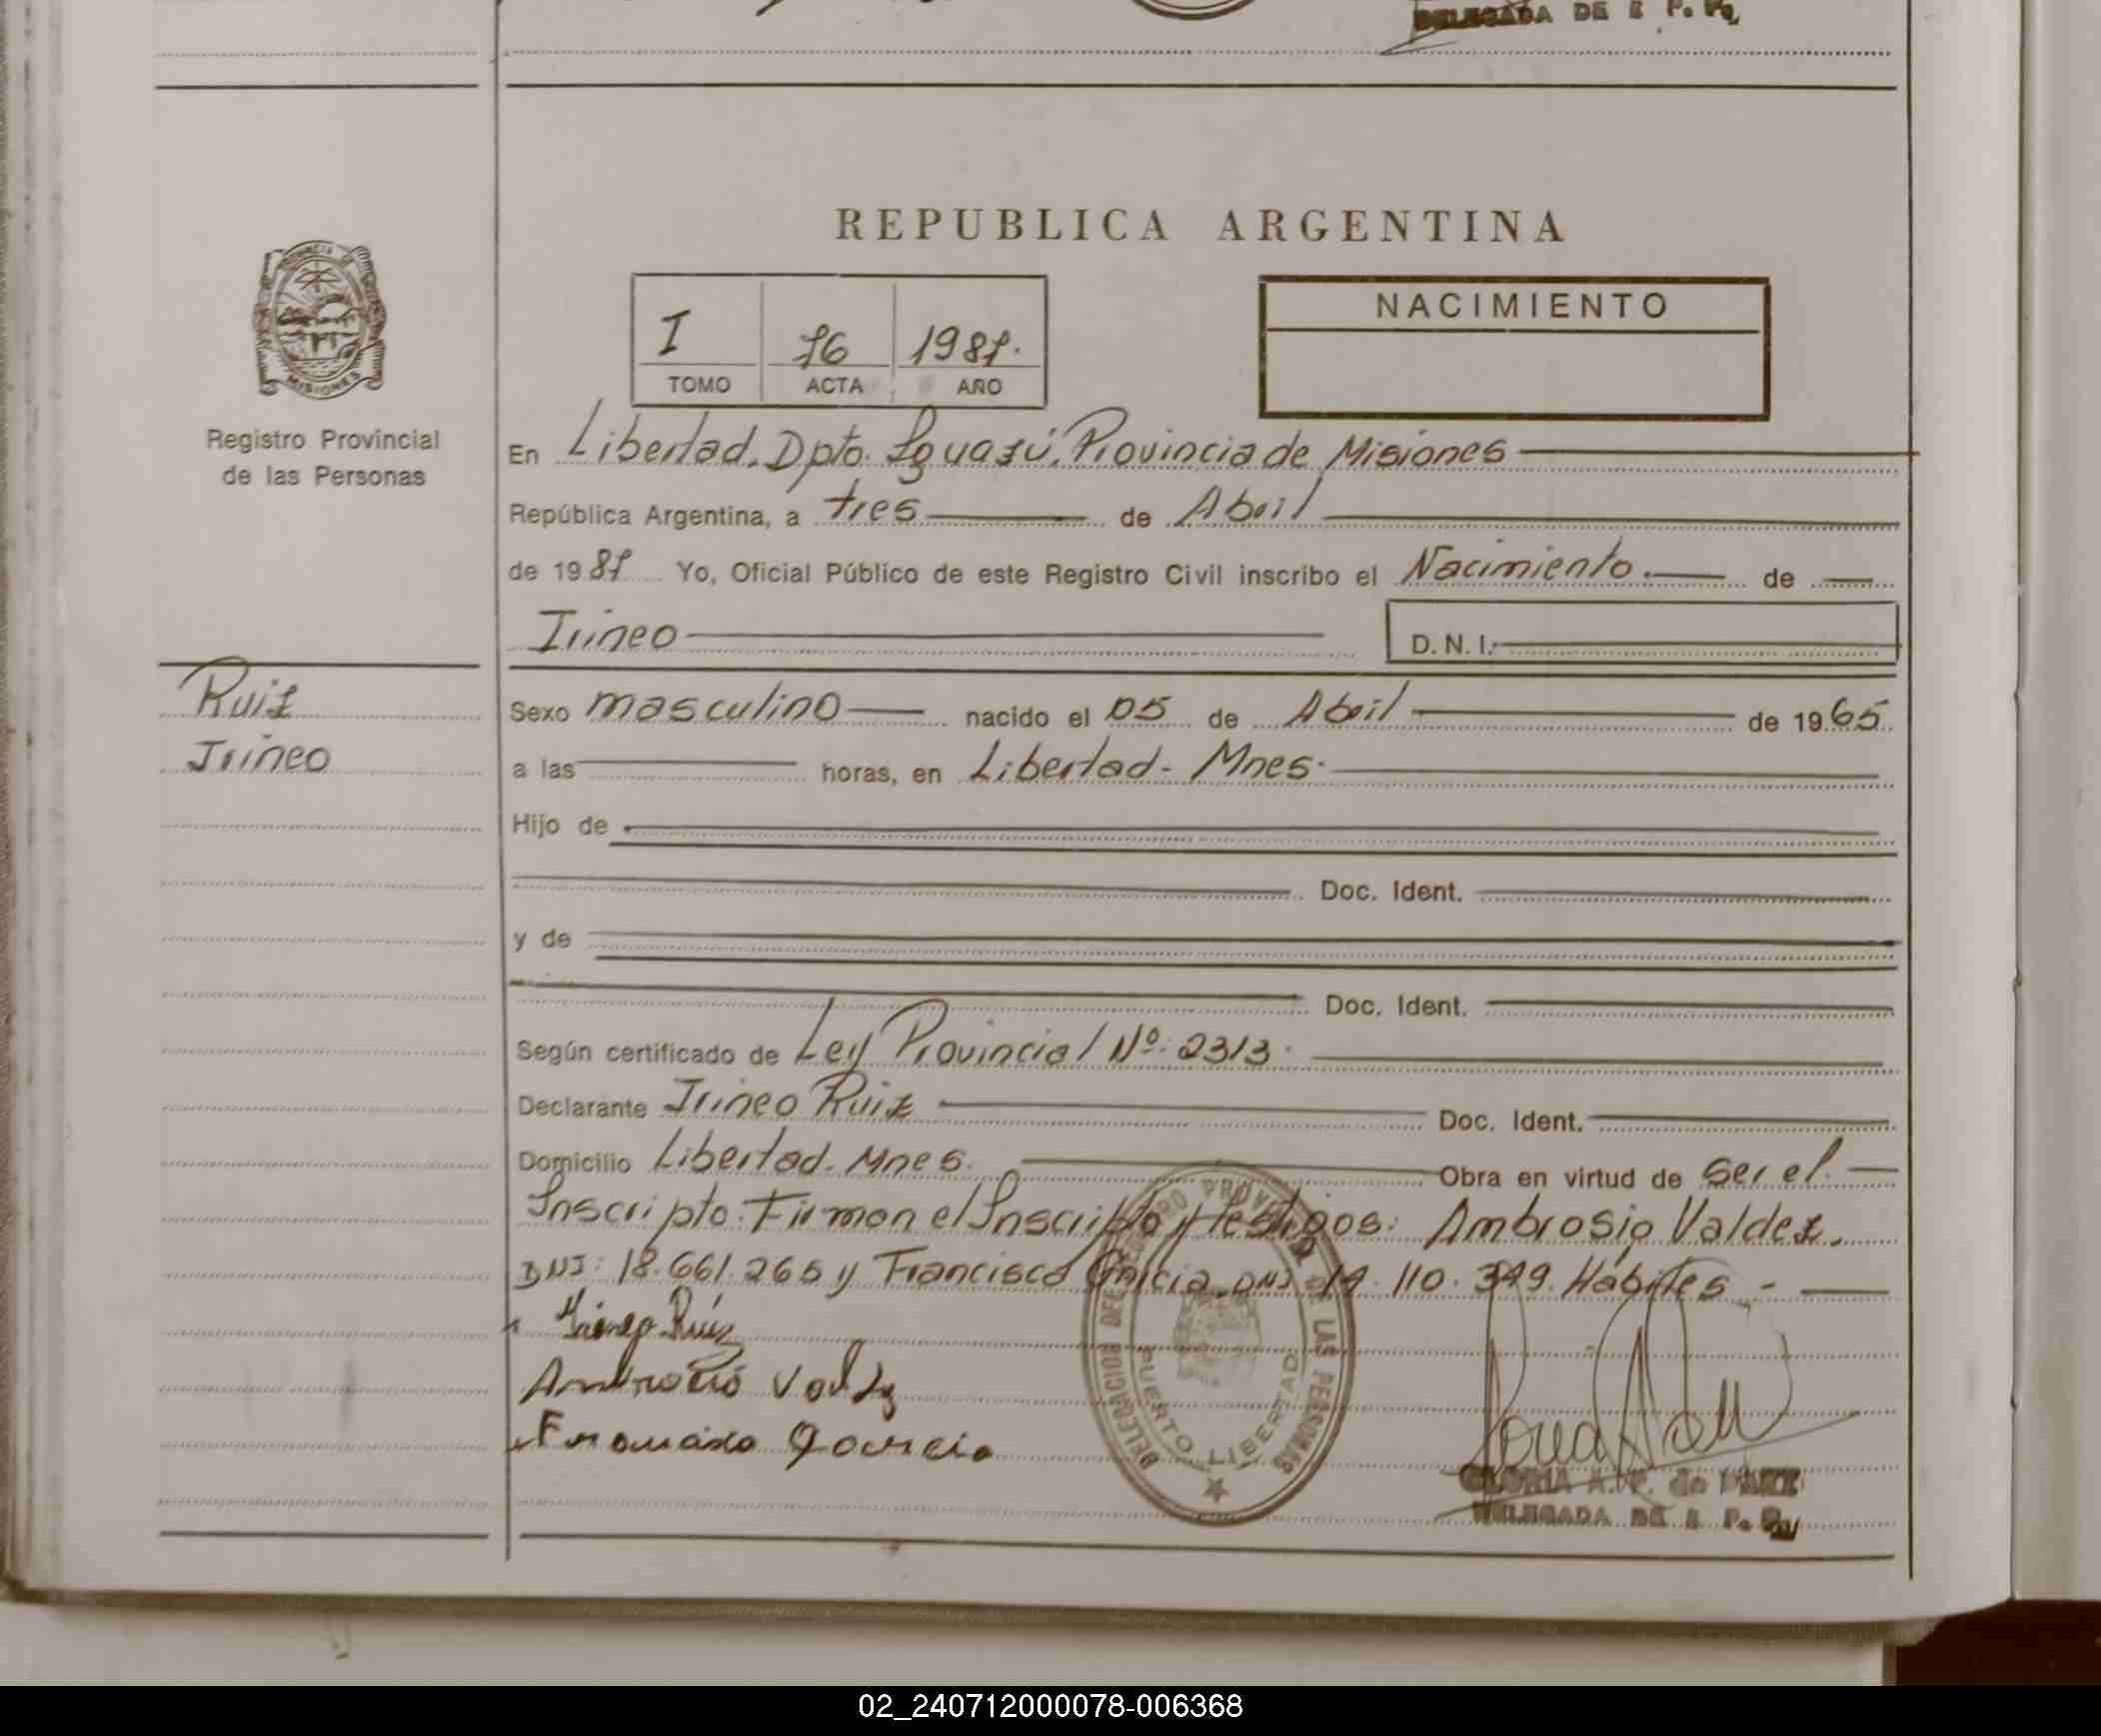 DELEGADA DE E P. Pq.
REPUBLICA ARGENTINA
PROVINCIA DE
MISIONES
Registro Provincial
de las Personas
NACIMIENTO
I 76 1987.
TOMO ACTA AÑO
En Libertad. Dpto. Iguazú. Provincia de Misiones
República Argentina, a tres de Abril
de 1987 Yo, Oficial Público de este Registro Civil inscribo el Nacimiento. de
Irineo D. N. I.
Ruiz
Irineo
Sexo masculino nacido el 05 de Abril de 1965
a las horas, en Libertad - Mnes.
Hijo de
Doc. Ident.
y de
Doc. Ident.
Según certificado de Ley Provincial Nº: 2313.
Declarante Irineo Ruiz Doc. Ident.
Domicilio Libertad. Mnes. Obra en virtud de ser el.
Inscripto. Firman el Inscripto y testigos: Ambrosio Valdez.
DNI: 18.661.265 y Francisco Garcia DNI 110. Hábiles -
Irineo Ruiz
Ambrosio Valdez
Francisco Garcia
PUERTO LIBERTAD
GLORIA A. de PAEZ
DELEGADA DE E P. Pq.
02_240712000078-006368